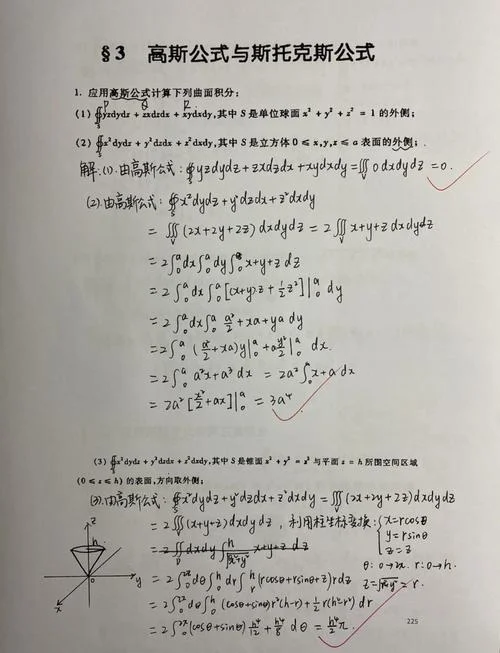 §3 高斯公式与斯托克斯公式
1. 应用高斯公式计算下列曲面积分:
P Q R
(1) ∯yzdydz + zxdzdx + xydxdy,其中 S 是单位球面 x² + y² + z² = 1 的外侧;
(2) ∯x²dydz + y²dzdx + z²dxdy,其中 S 是立方体 0≤x,y,z≤a 表面的外侧;
解:(1).由高斯公式: ∯_S yzdydz + zxdzdx + xydxdy = ∭_V 0dxdydz = 0.
(2).由高斯公式: ∯_S x²dydz + y²dzdx + z²dxdy
= ∭_V (2x+2y+2z) dxdydz = 2∭_V x+y+z dxdydz
= 2∫₀^a dx∫₀^a dy∫₀^a x+y+z dz
= 2∫₀^a dx∫₀^a [(x+y)z + ½z²]|₀^a dy
= 2∫₀^a dx∫₀^a a²/2 + xa + ya dy
= 2∫₀^a (a²/2 + xa)y|₀^a + a y²/2|₀^a dx.
= 2∫₀^a a²x + a³ dx = 2a²∫₀^a x+a dx
= 2a²[x²/2 + ax]|₀^a = 3a⁴.
(3) ∯x²dydz + y²dzdx + z²dxdy,其中 S 是锥面 x² + y² = z² 与平面 z = h 所围空间区域
(0≤z≤h) 的表面,方向取外侧;
(3).由高斯公式: ∯_S x²dydz + y²dzdx + z²dxdy = ∭_V (2x+2y+2z) dxdydz
= 2∭_V (x+y+z) dxdydz, 利用柱坐标变换: { x=rcosθ
y=rsinθ
z=z
= 2∬_D dxdy∫_{√(x²+y²)}^h x+y+z dz
θ: 0→2π. r: 0→h.
= 2∫₀^{2π} dθ∫₀^h dr∫_r^h (rcosθ+rsinθ+z)rdz z=√(x²+y²)=r.
= 2∫₀^{2π} dθ∫₀^h (cosθ+sinθ)r²(h-r) + ½r(h²-r²) dr
= 2∫₀^{2π} (cosθ+sinθ) h⁴/12 + h⁴/8 dθ = h⁴/2 π.
z
h
0
y
x
225